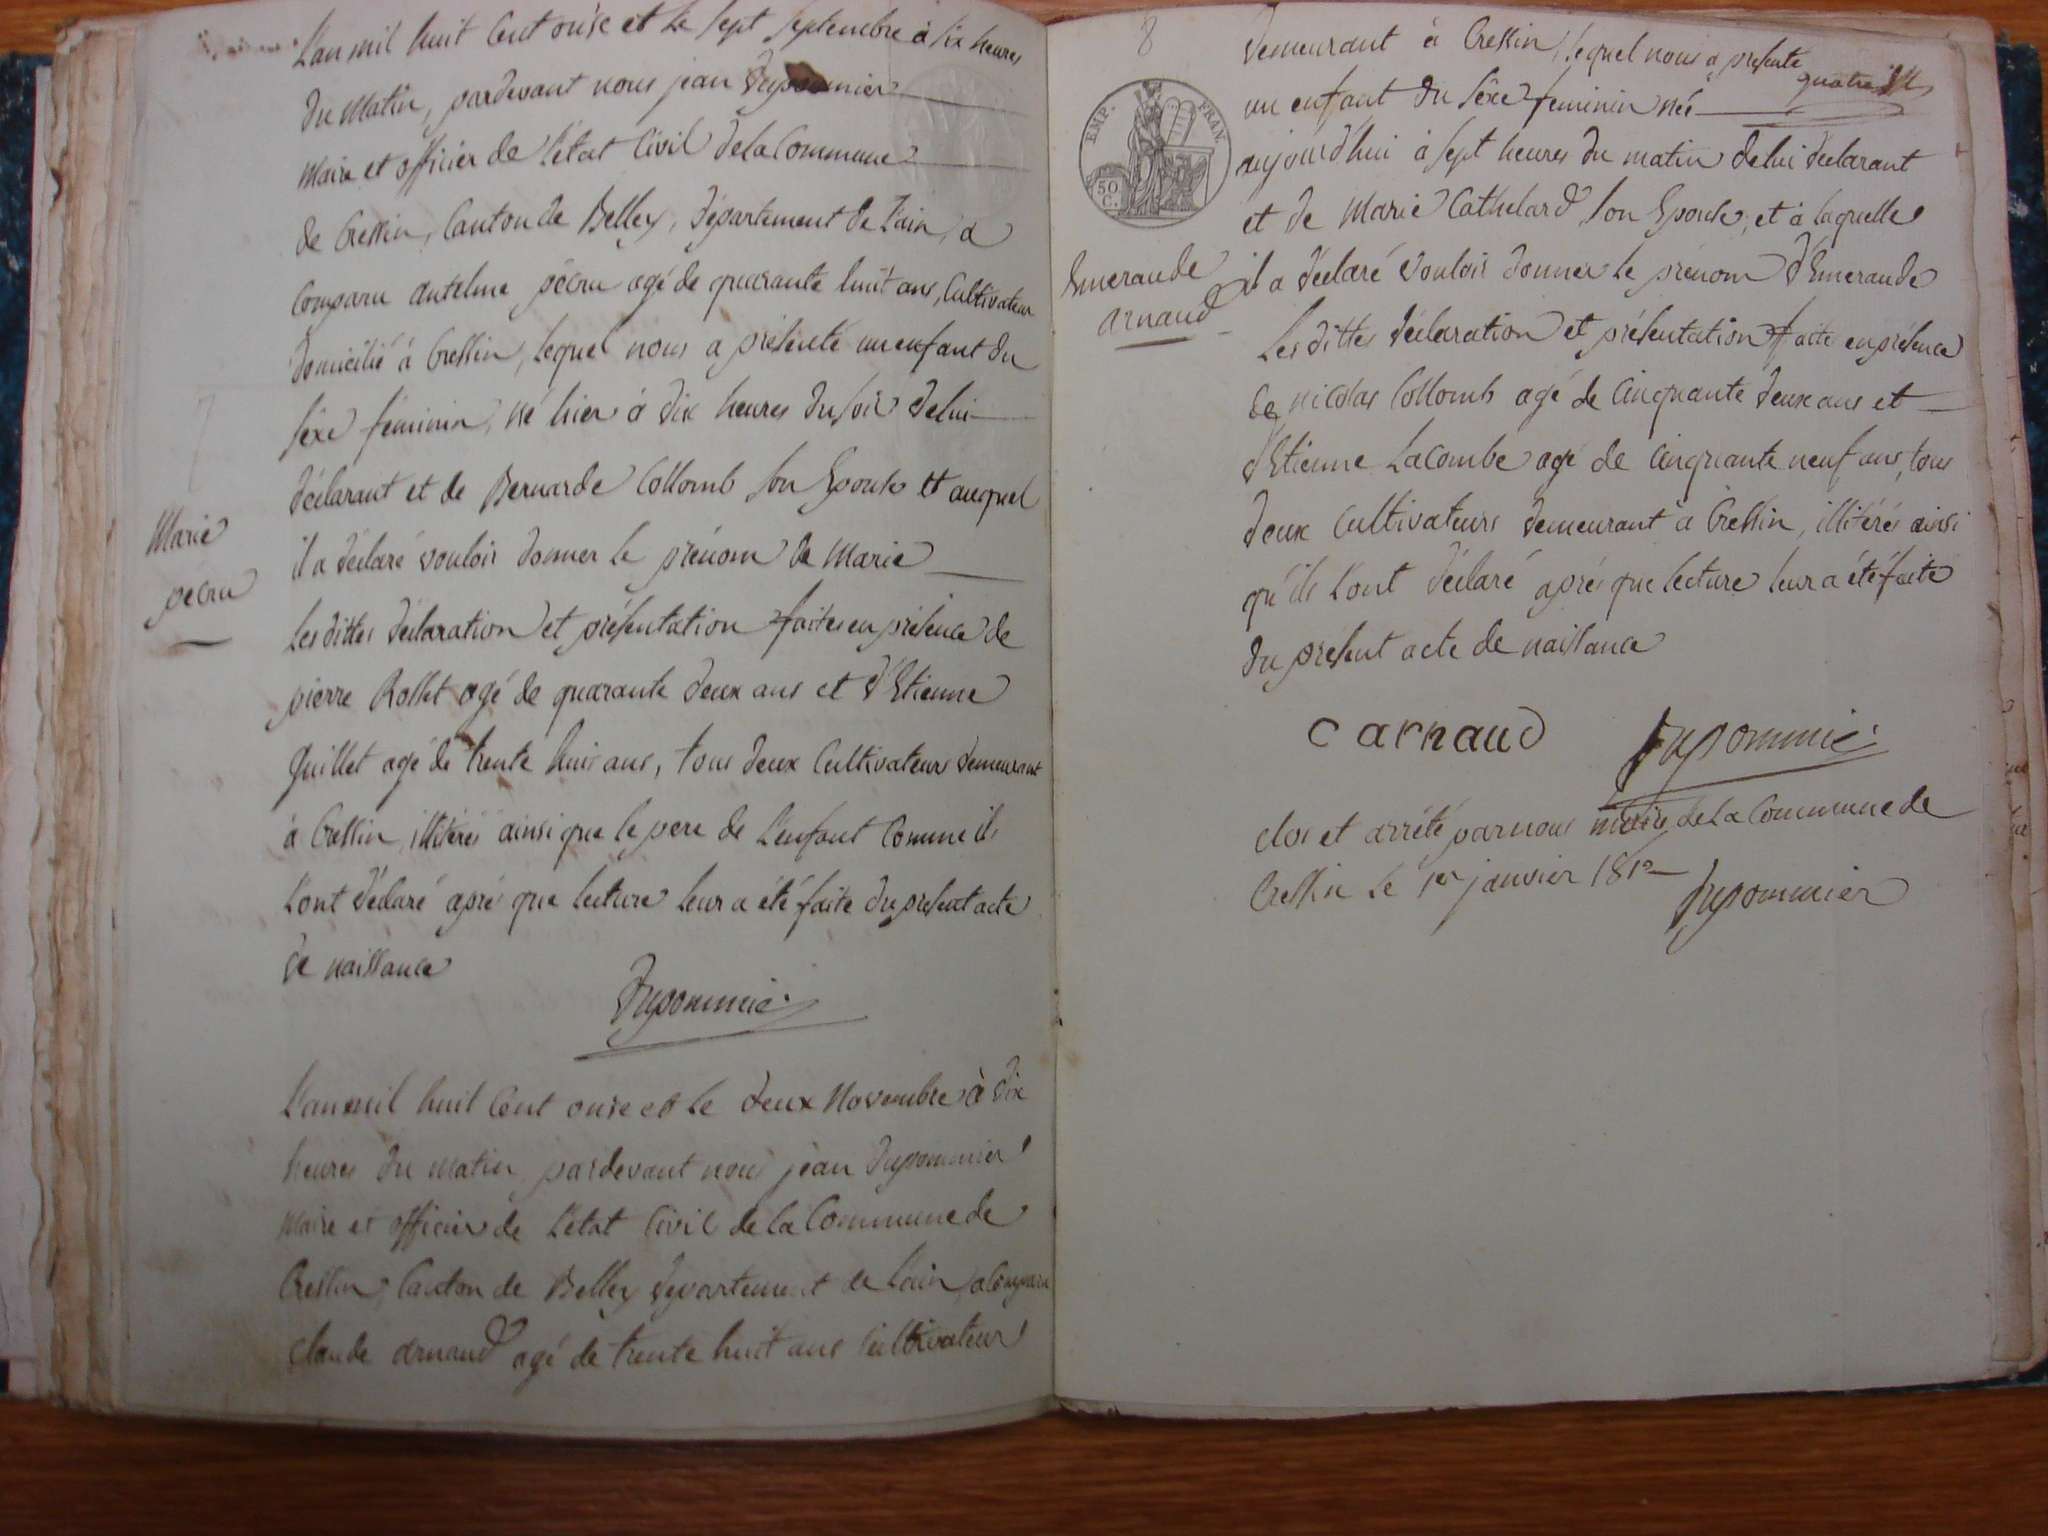 L'an mil huit Cent onze et le sept septembre à six heures
du matin, pardevant nous jean Dupommier
maire et officier de l'état Civil de la Commune
de Cressin, Canton de Belley, département de L'ain, a
Comparu antelme pécru agé de quarante huit ans, Cultivateur
domicilié à Cressin, lequel nous a présenté un enfant du
séxe féminin, né hier à dix heures du soir de lui
déclarant et de Bernarde Collomb son Epouse et auquel
il a déclaré vouloir donner le prénom de Marie
Marie
pécru
Les dittes déclaration et présentation faites en présence de
pierre Rosset agé de quarante deux ans et d'Etienne
Guillet agé de trente huit ans, tous deux Cultivateurs demeurant
à Cressin, illitérés ainsi que le pere de L'enfant Comme ils
L'ont déclaré aprés que lecture leur a été faite du présent acte
de naissance
Dupommier
L'an mil huit Cent onze et le deux Novembre à dix
heures du matin pardevant nous jean Dupommier
maire et officier de L'état Civil de la Commune de
Cressin, Canton de Belley département de L'ain, a Comparu
Claude arnaud agé de trente huit ans Cultivateur
8
demeurant à Cressin, lequel nous a présenté
un enfant du séxe feminin née
EMP. FRAN.
50 C.
aujourd'hui à sept heures du matin de lui déclarant
et de Marie Cathelard son Epouse, et à laquelle
il a déclaré vouloir donner le prénom d'Emeraude
Emeraude
arnaud
Les dittes déclaration et présentation faite en présence
de nicolas Collomb agé de Cinquante deux ans et
d'Etienne Lacombe agé de Cinquante neuf ans, tous
deux Cultivateurs demeurant à Cressin, illitérés ainsi
qu'ils L'ont déclaré aprés que lecture leur a été faite
du présent acte de naissance
C arnaud Dupommier
Clos et arrêté par nous maire de La Commune de
Cressin Le 1er janvier 1812
Dupommier